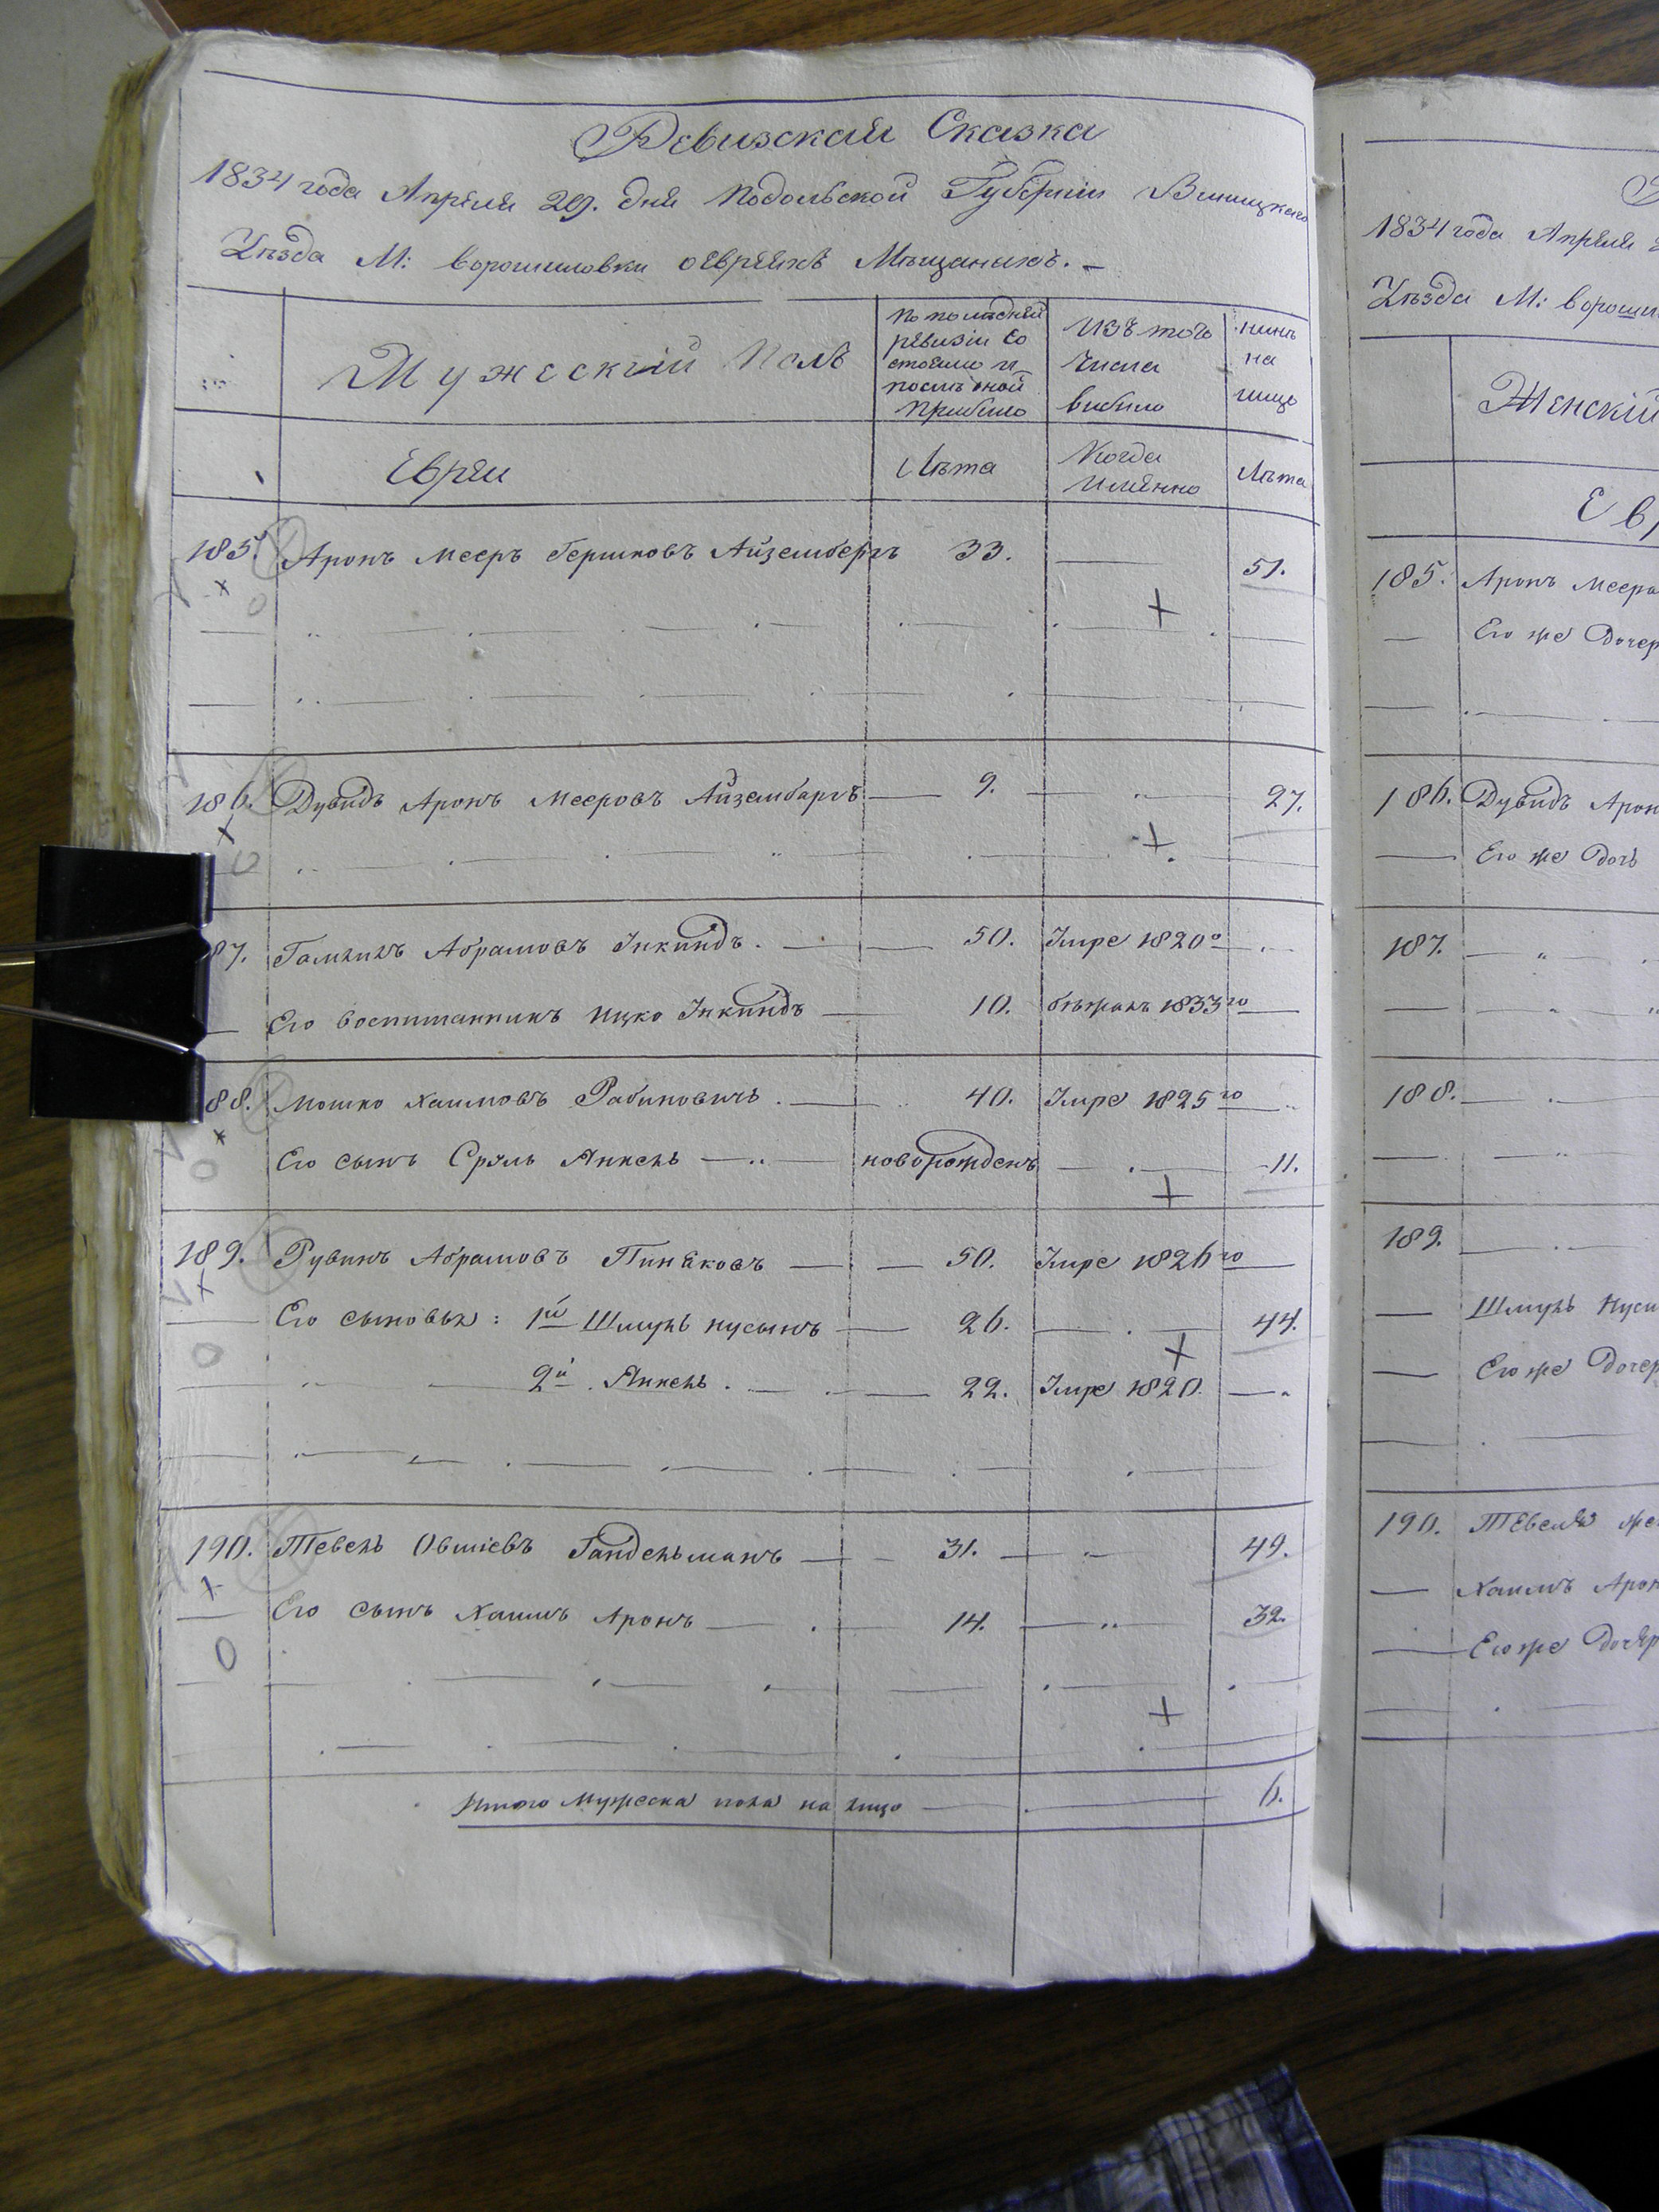 Ревизская Сказка
1834 года Апреля 29. дня Подольской Губернии Винницкаго
Уезда М: Ворошиловки оевреяхъ Мещаныхъ. —
Мужескій Полъ
По последней ревизіи состояло и после оной прибыло
Изъ того числа выбыло
ныне на лицо
Евреи
Лета
Когда именно
Лета
185. Аронъ Мееръ Гершковъ Айзембергъ 33. — 51.
186. Дувидъ Аронъ Мееровъ Айзембаргъ — 9. — 27.
87. Абрамовъ Инкиндъ. — 50. Умре 1820о
Его воспитанникъ Ицко Инкиндъ — 10. бежалъ 1833го —
88. Мошко Хаимовъ Рабиновичъ. — 40. Умре 1825го —
Его сынъ Сруль Янкель — новорожденъ — 11.
189. Рувинъ Абрамовъ Пиньковъ — 50. Умре 1826го —
Его сыновья: 1й Шмуль Нусынъ — 26. — 44.
2й. Янкель. — 22. Умре 1820. —
190. Тевель Овшіевъ Гандельманъ — 31. — 49.
Его сынъ Хаимъ Аронъ — 14. — 32.
Итого мужеска пола на лицо — 6.
1834 года Апреля
Уезда М:
Женскій
Ев
185. Аронъ Меера
Его же Дочер
186. Дувидъ Арон
Его же Дочь
187.
188.
189.
Шмуль Нуси
Его же Дочер
190. Тевеля же
Хаимъ Арон
Его же Дочер